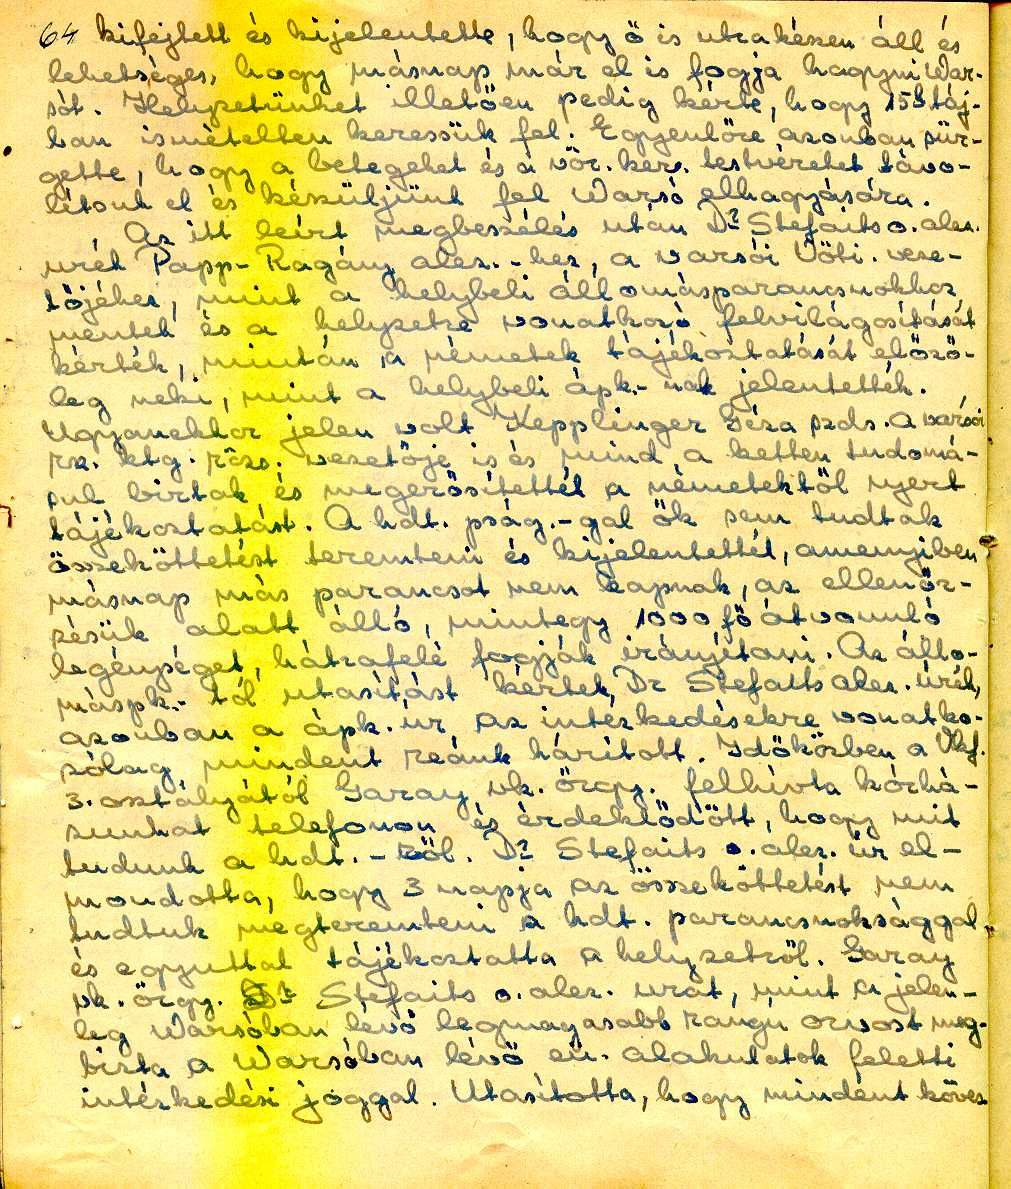 64 kifejtett és kijelentette, hogy ő is utrakészen áll és
lehetséges, hogy másnap már el is fogja hagyni War-
sót. Helyzetünket illetően pedig kérte, hogy 15h táj-
ban ismételten keressük fel. Egyenlőre azonban sür-
gette, hogy a betegeket és a vör. ker. testvéreket távo-
lítsuk el és készüljünk fel Warsó elhagyására.
Az itt leírt megbeszélés után Dr Stefaits o. alez.
urék Papp-Ragány alez.-hez, a varsói Völi. veze-
tőjéhez, mint a helybeli állomásparancsnokhoz
mentek és a helyzetre vonatkozó felvilágosítását
kérték, miután a németek tájékoztatását előző-
leg neki, mint a helybeli ápk.-nak jelentették.
Ugyanekkor jelen volt Kepplinger Géza szds. a varsói
ktg. vezetője is és mind a ketten tudomá-
sul birtak és megerősítették a németektől nyert
tájékoztatást. A hdt. pság.-gal ők sem tudtak
összeköttetést teremteni és kijelentették, amenyiben
másnap más parancsot nem kapnak, az ellenőr-
zésük alatt álló, mintegy 1000 fő átvonuló
legénységet, hátrafelé fogják irányítani. Az állo-
máspk.-tól utasítást kértek, Dr Stefaits alez. úrék,
azonban a ápk. úr az intézkedésekre vonatko-
zólag mindent reánk hárított. Időközben a Vkf.
3. osztályától Garay vk. őrgy. felhívta kórhá-
zunkat telefonon és érdeklődött, hogy mit
tudunk a hdt.-ről. Dr Stefaits o. alez. úr el-
mondotta, hogy 3 napja az összeköttetést nem
tudtuk megteremteni a hdt. parancsnoksággal
és egyuttal tájékoztatta a helyzetről. Garay
vk. őrgy. Dr Stefaits o. alez. urat, mint a jelen-
leg Warsóban lévő legmagasabb rangu orvost meg-
bízta a Warsóban lévő eü. alakulatok feletti
intézkedési joggal. Utasította, hogy mindent köves